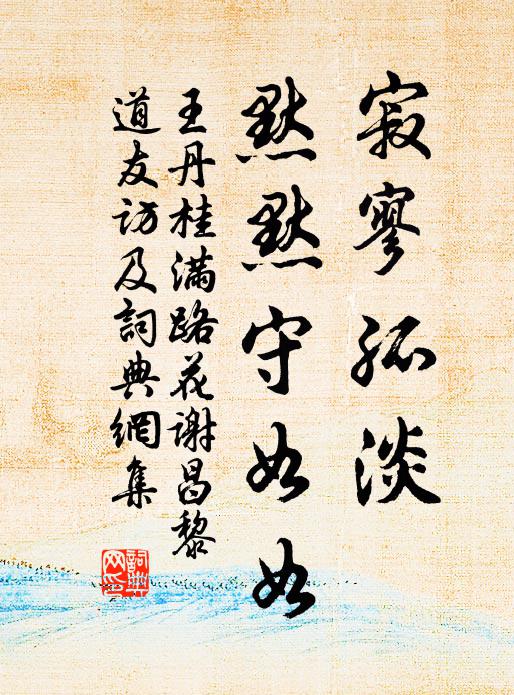 寂寥孤淡
默默守如如
王丹桂满路花谢昌黎
道友访及詞典網集
詞典网印